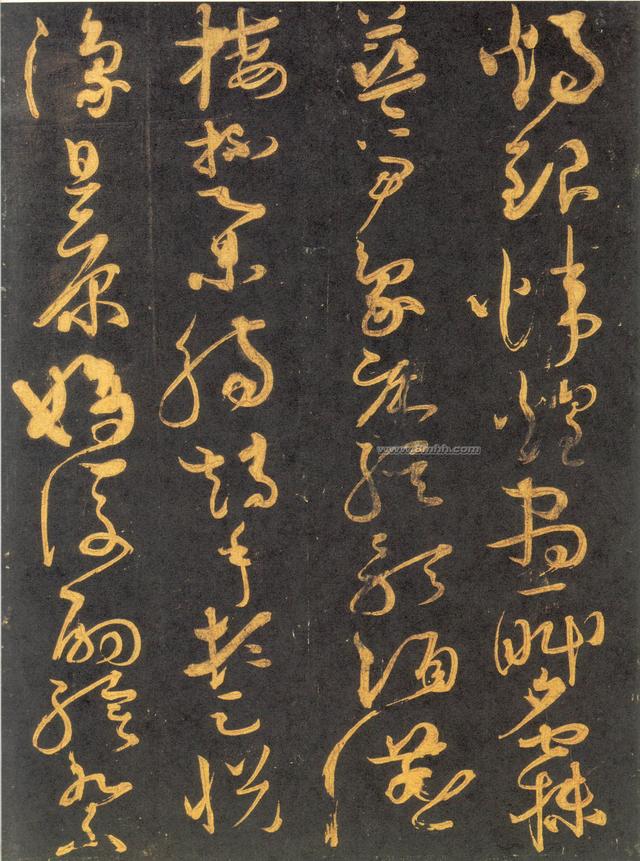 燭銀煒煌晝眠夕寐
藍笋象床絃歌酒讌
接杯舉觴矯手頓足悅
豫且康嫡後嗣續祭